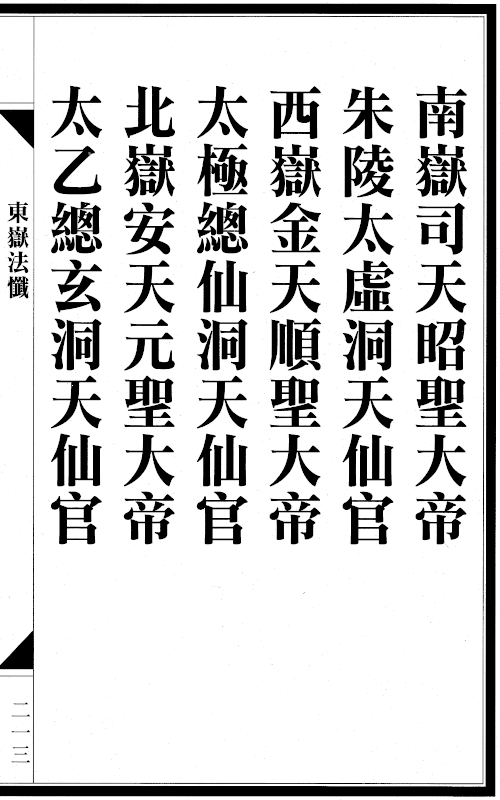 南嶽司天昭聖大帝
朱陵太虛洞天仙官
西嶽金天順聖大帝
太極總仙洞天仙官
北嶽安天元聖大帝
太乙總玄洞天仙官
東嶽法懺
二一三